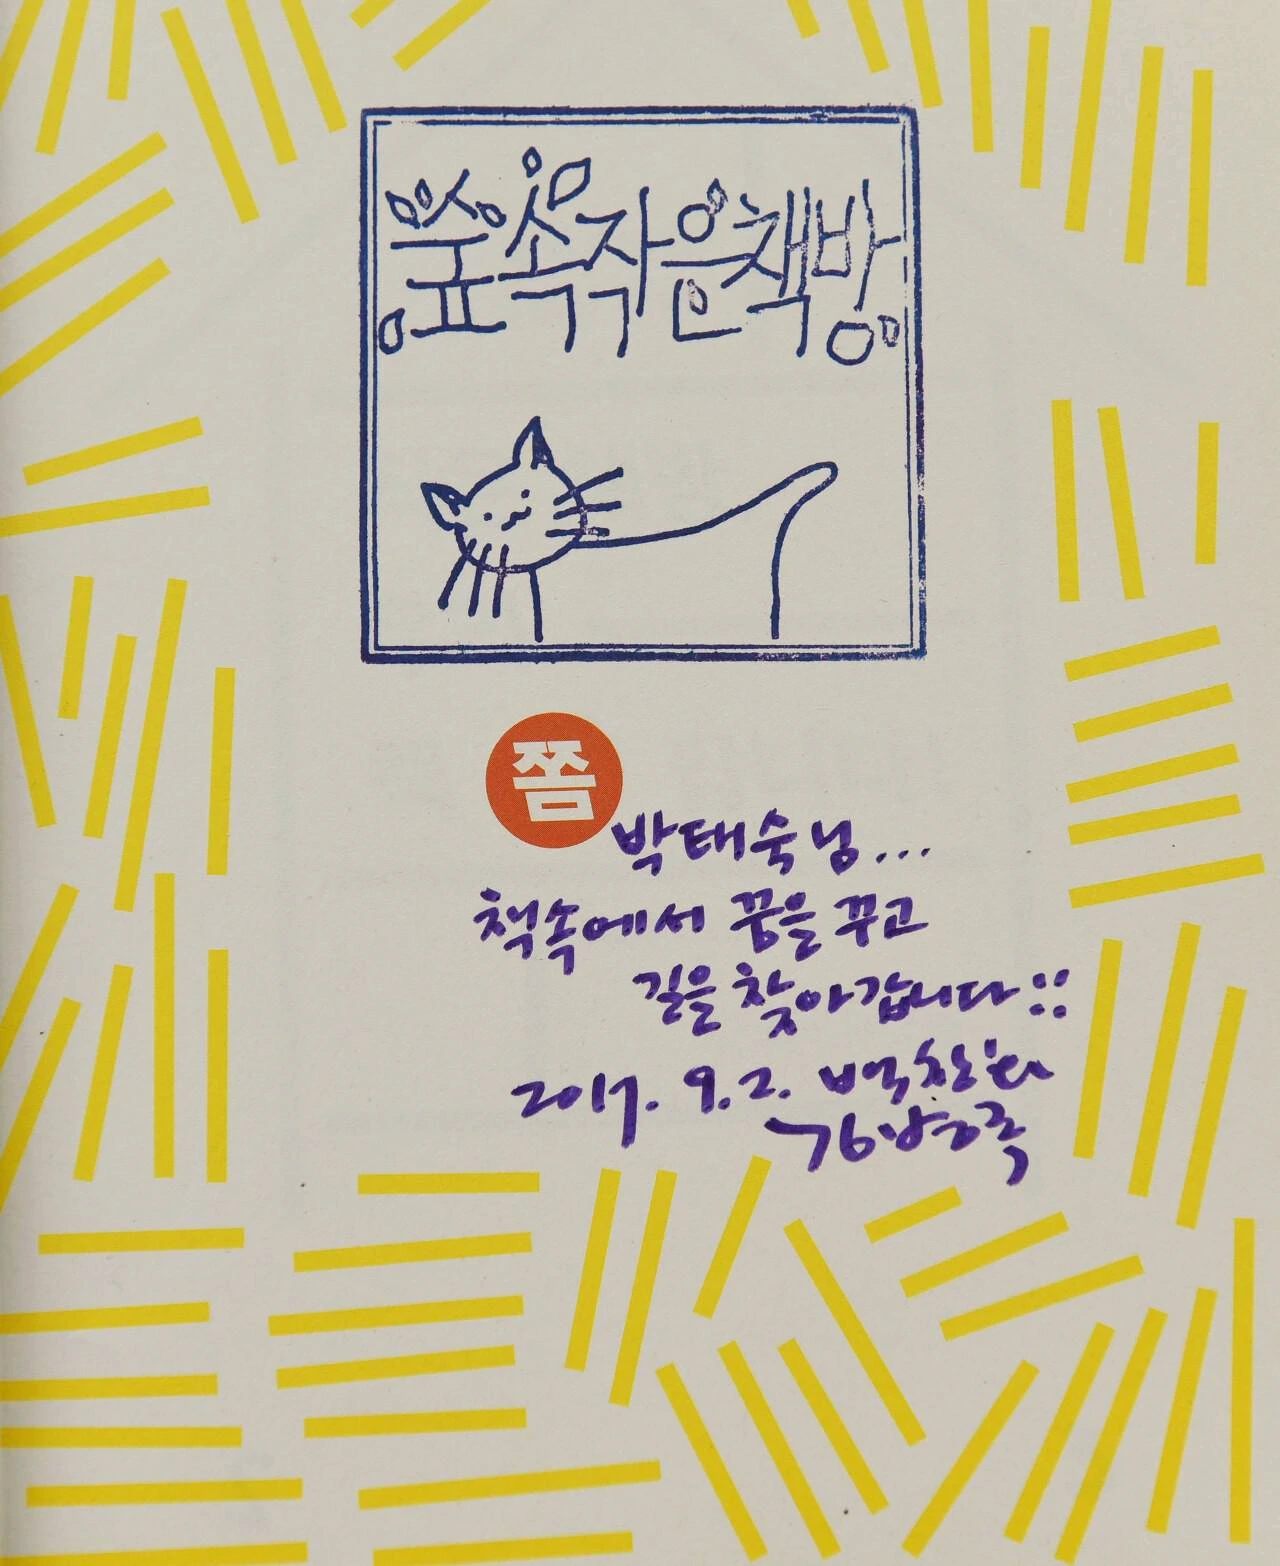 숲속작은책방
쫌
박태숙님...
책속에서 꿈을 꾸고
길을 찾아갑니다::
2017. 9. 2. 백창화
김병록